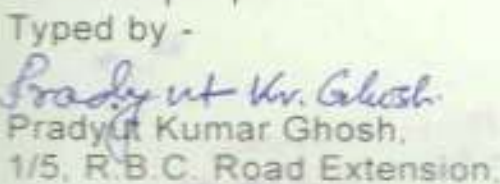 Typed by -
Pradyut Kr. Ghosh.
Pradyut Kumar Ghosh,
1/5, R.B.C. Road Extension,